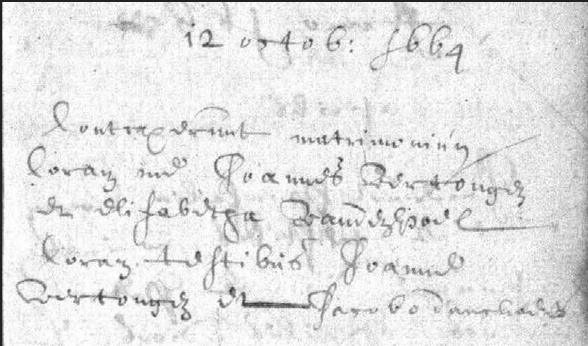 12 octob: 1664
Contraxerunt matrimoniũ
Coram me Joannes Vertongen
et Elisabetha Vanden poel
Coram testibus Joanne
Vertongen et Jacobo